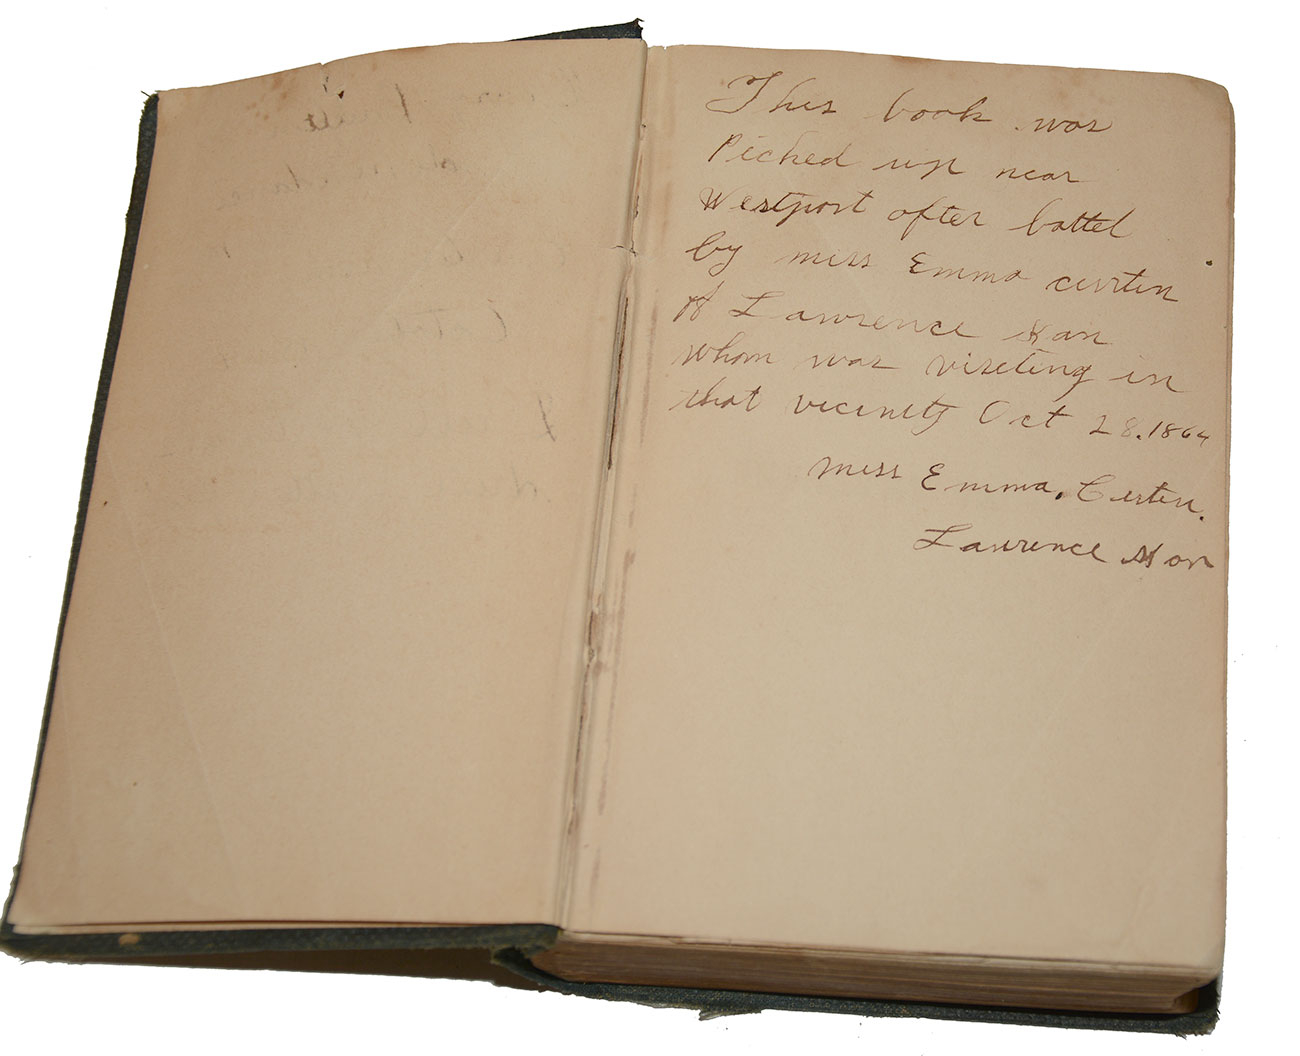 This book was
Picked up near
Westport after battel
by miss Emma curten
of Lawrence Kan
whom was viseting in
that vicinity Oct 28.1864
miss Emma. Certen.
Lawrence Kan